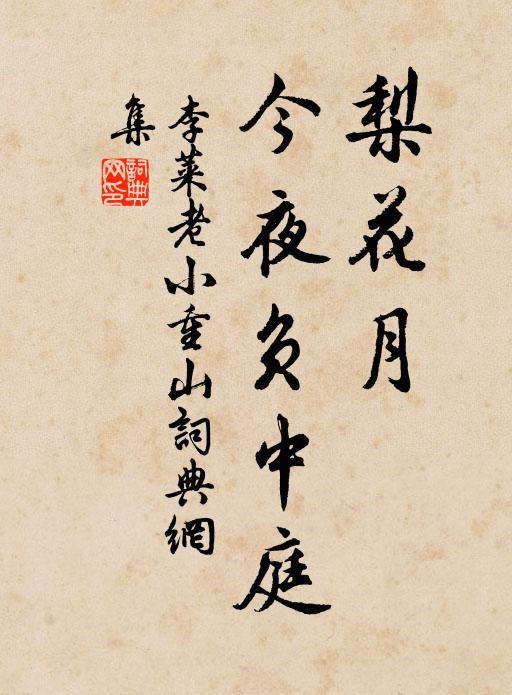 梨花月
今夜负中庭
李莱老小重山詞典網
集
詞典网印